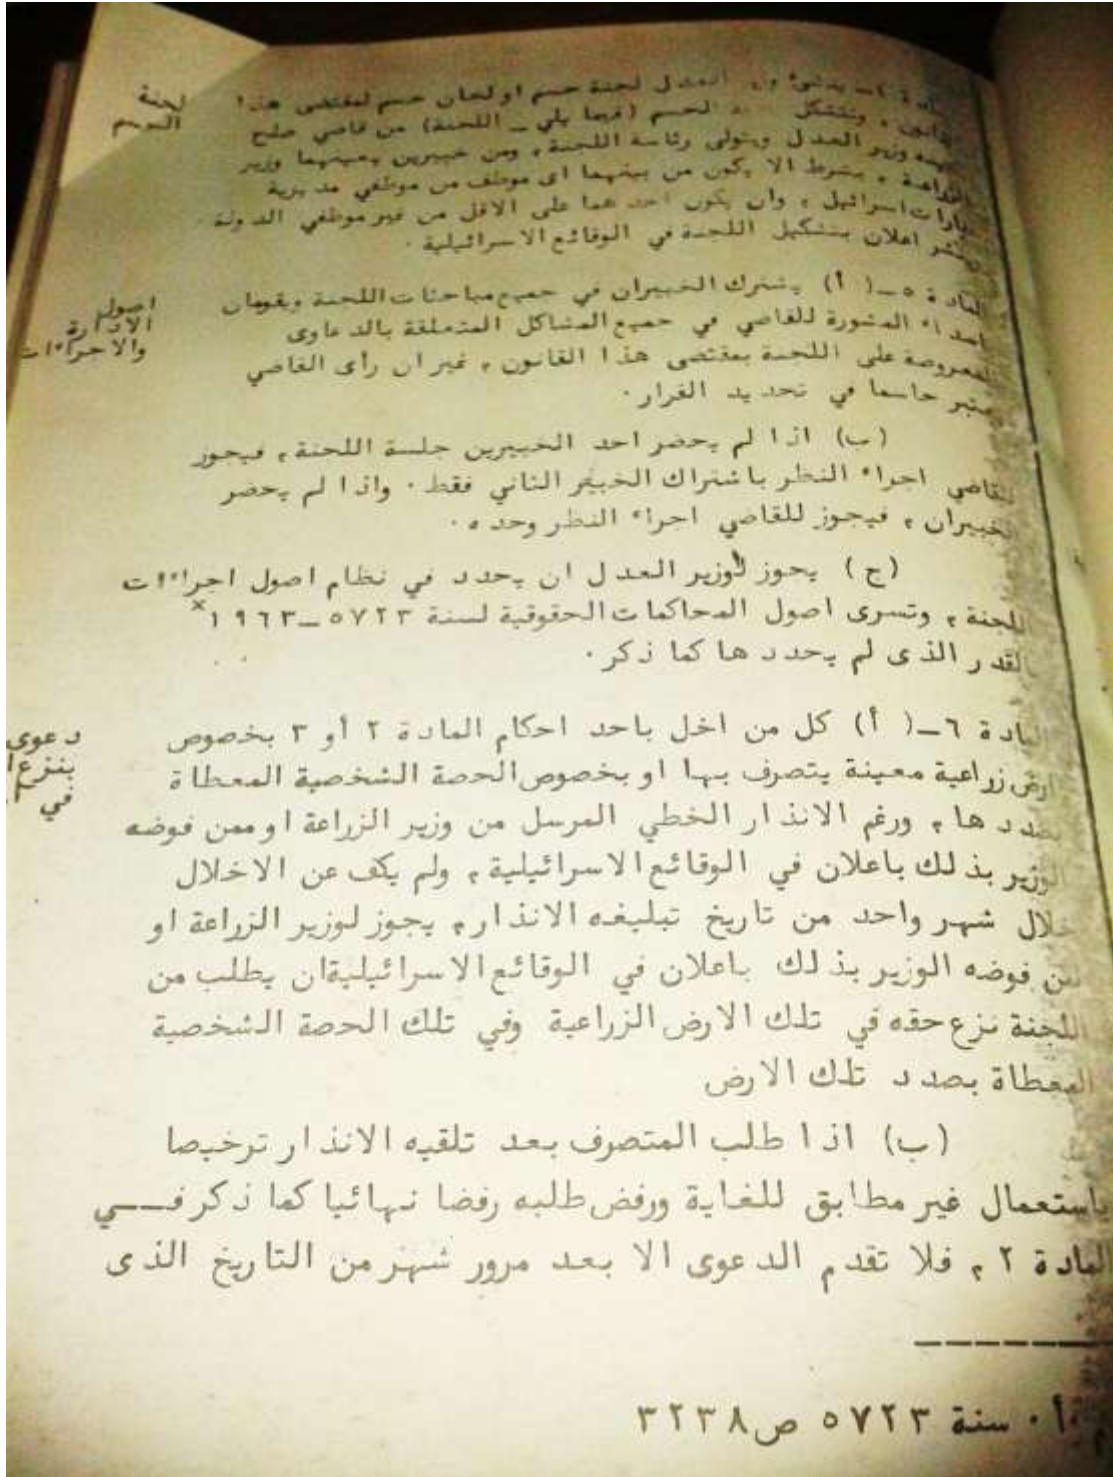 لجنة
الحسم
المادة ٤- ينشئ وزير العدل لجنة حسم او لجان حسم لمقتضى هذا
القانون ، وتتشكل لجنة الحسم (فيما يلي - اللجنة) من قاضي صلح
يعينه وزير العدل ويتولى رئاسة اللجنة ، ومن خبيرين يعينهما وزير
الزراعة ، بشرط الا يكون من بينهما اى موظف من موظفي مديرية
عقارات اسرائيل ، وان يكون احدهما على الاقل من غير موظفي الدولة .
وينشر اعلان بتشكيل اللجنة في الوقائع الاسرائيلية .
اصول
الادارة
والاجراءات
المادة ٥-(أ) يشترك الخبيران في جميع مباحثات اللجنة ويقومان
باسداء المشورة للقاضي في جميع المشاكل المتعلقة بالدعاوى
المعروضة على اللجنة بمقتضى هذا القانون ، غير ان رأى القاضي
يعتبر حاسما في تحديد القرار .
(ب) اذا لم يحضر احد الخبيرين جلسة اللجنة ، فيجوز
للقاضي اجراء النظر باشتراك الخبير الثاني فقط . واذا لم يحضر
الخبيران ، فيجوز للقاضي اجراء النظر وحده .
(ج) يجوز لوزير العدل ان يحدد في نظام اصول اجراءات
اللجنة ، وتسرى اصول المحاكمات الحقوقية لسنة ٥٧٢٣-١٩٦٣×
بالقدر الذى لم يحددها كما ذكر .
دعوى
بنزع ا
في
المادة ٦-(أ) كل من اخل باحد احكام المادة ٢ أو ٣ بخصوص
ارض زراعية معينة يتصرف بها او بخصوص الحصة الشخصية المعطاة
بصددها ، ورغم الانذار الخطي المرسل من وزير الزراعة او ممن فوضه
الوزير بذلك باعلان في الوقائع الاسرائيلية ، ولم يكف عن الاخلال
خلال شهر واحد من تاريخ تبليغه الانذار ، يجوز لوزير الزراعة او
من فوضه الوزير بذلك باعلان في الوقائع الاسرائيلية ان يطلب من
اللجنة نزع حقه في تلك الارض الزراعية وفي تلك الحصة الشخصية
المعطاة بصدد تلك الارض
(ب) اذا طلب المتصرف بعد تلقيه الانذار ترخيصا
باستعمال غير مطابق للغاية ورفض طلبه رفضا نهائيا كما ذكر فـــي
المادة ٢ ، فلا تقدم الدعوى الا بعد مرور شهر من التاريخ الذى
أ . سنة ٥٧٢٣ ص ٣٢٣٨